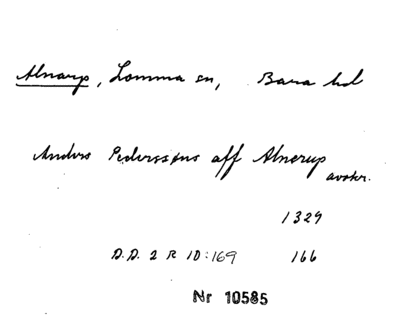 Alnarp, Lomma sn, Bara hd
Anders Pederssøns aff Alnerup
avskr.
1329
D.D. 2 R 10:169 166
Nr 10585